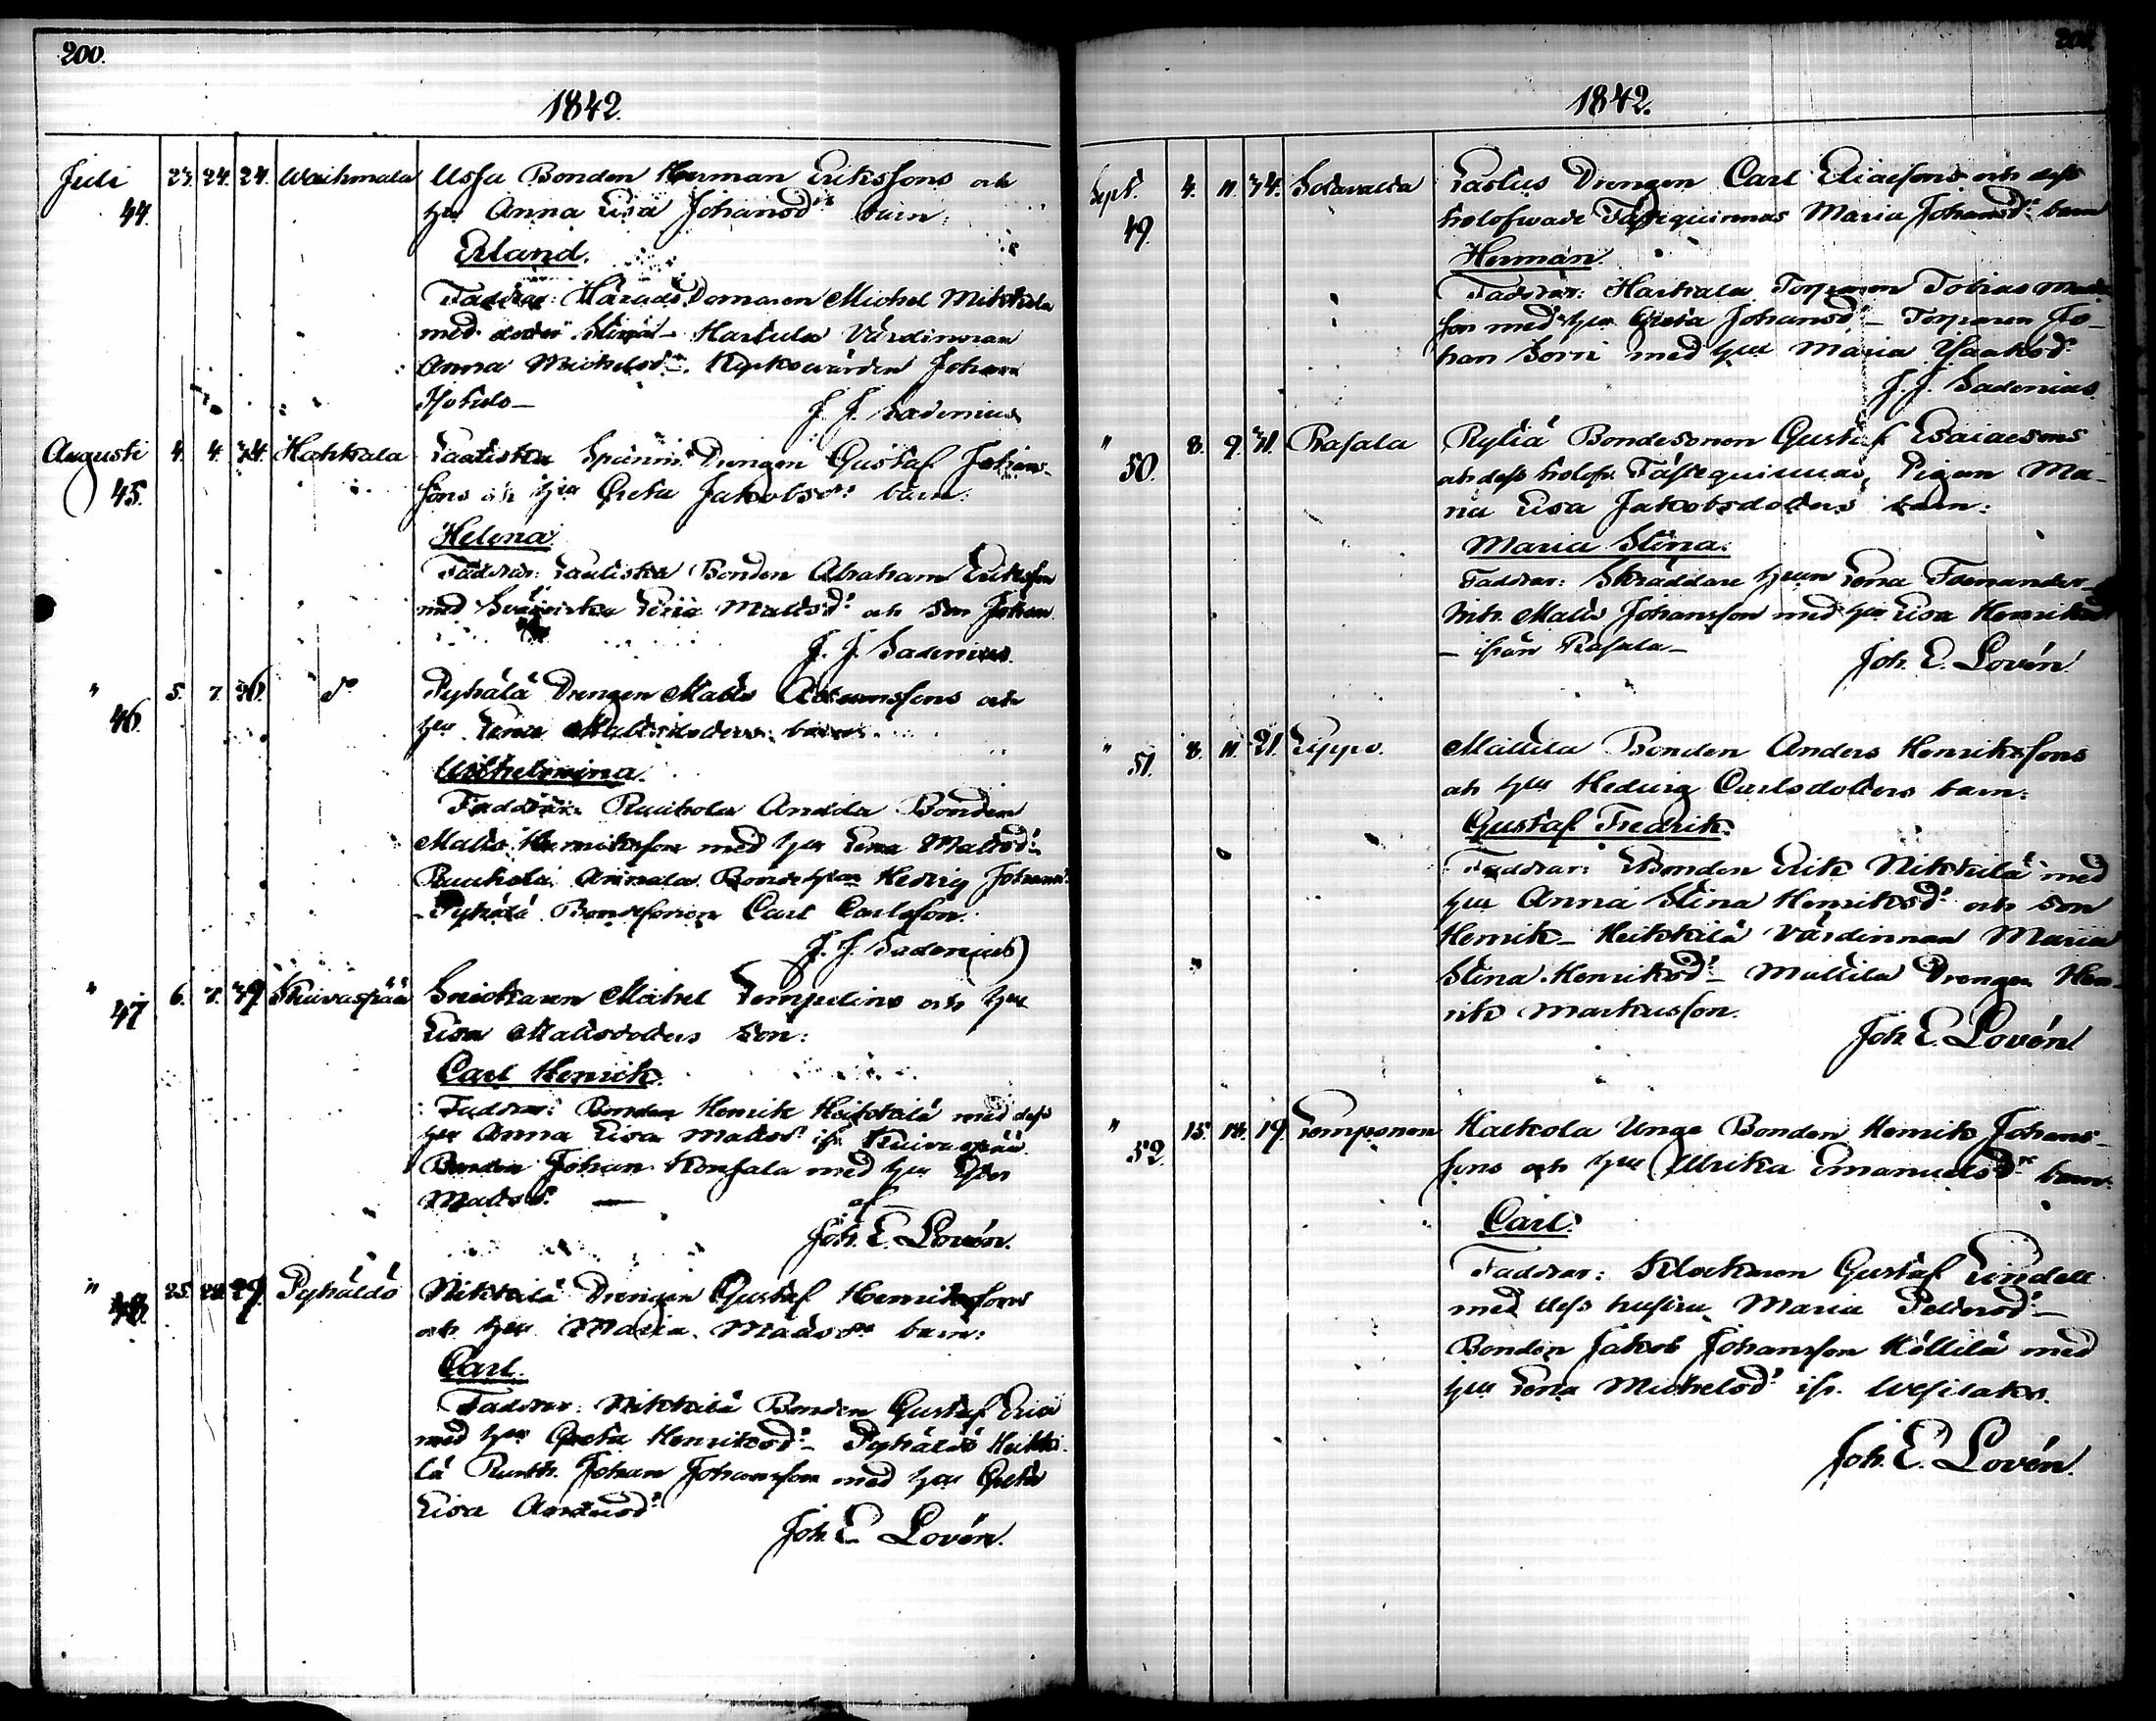 200.
1842.
Juli 23. 24. 24. Waihmala Ussa Bonden Herman Erikssons och
44. hu Anna Lisa Johansdr barn:
Erland.
Faddrar: Härads Domaren Michel Mikkola
med dotter Stina – Hartula Värdinnan
Anna Michelsdr. Kyrkovärden Johan
J. J. Sadenius
Augusti 4. 4. 34. Hakkala Lautiska Spännm. Drengen Gustaf Johans-
45. sons och hu Greta Jakobsdr barn:
Helena.
Faddrar: Lautiska Bonden Abraham Eriksson
med Lena Mattsd. och Son Johan
J. J. Sadenius.
" 5. 7. 36. do Pyhälä Drengen Matts Adamssons och
46. hu Lena Mattsdotters barn
Wilhelmina.
Faddrar: Ruuhola Andda Bonden
Matts Henriksson med hu Lena Mattsd.
Ruuhola Annala Bondehun Hedvig Johansd.
– Pyhälä Bondesonen Carl Carlsson.
J. J. Sadenius
" 6. 7. 39. Kuivaspää Snickaren Michel Tempelins och hu
47 Lisa Mattsdotters Son:
Carl Henrik.
Faddrar: Bonden Henrik Heikkilä med dess
hu Anna Lisa Mattsd. ifr. Kuivaspää
Bonden Johan Konsala med hu
Mattsd. — af
Joh. E. Lovén.
" 25. 28. 29. Pyhältö Nikkilä Drengen Gustaf Henrikssons
48. och hu Maria Madsdr barn:
Carl.
Faddrar: Nikkilä Bonden Gustaf Eric
med hu Greta Henriksd. – Pyhältö Heikki-
lä Rusth. Johan Johansson med hu Greta
Lisa Andersd.
Joh. E. Lovén.
1842.
Sept. 4. 11. 34. Sotavalta Lastus Drengen Carl Eliaesons och dess
49. trolofwade Fästeqvinnas Maria Johansd. barn
Herman.
Faddrar: Harkala Torparen Tobias Matts-
son med hu Greta Johansd. – Torparen Jo-
han Sorri med hu Maria Isaksd.
J. J. Sadenius
" 8. 9. 31. Rasala Ryliä Bondesonen Gustaf Esaiaesons
50. och dess trolofv. Fästeqvinnas, Pigan Ma-
ria Lisa Jakobsdotters barn:
Maria Stina.
Faddrar: Skräddare hun Lena Fornander –
Inh. Matts Johansson med hu Lisa Henriksd
– ifrån Rasala –
Joh. E. Lovén.
" 8. 11. 21. Lippo. Mattila Bonden Anders Henrikssons
51. och hu Hedvig Carlsdotters barn:
Gustaf Fredrik.
Faddrar: Bonden Erik Nikkilä med
hu Anna Stina Henriksd. och Son
Henrik – Heikkilä Värdinnan Maria
Stina Henriksd. – Mattila Drengen Hen-
rik Markusson.
Joh. E. Lovén
" 15. 18. 19. Lemponen Harkola Unge Bonden Henrik Johans-
52. sons och hu Ulrika Emanuelsdr barn:
Carl.
Faddrar: Klockaren Gustaf Lindell
med dess hustru Maria Pettersd. –
Bonden Jakob Johansson Köllilä med
hu Lena Michelsd. ifr. Wesilaks.
Joh. E. Lovén.